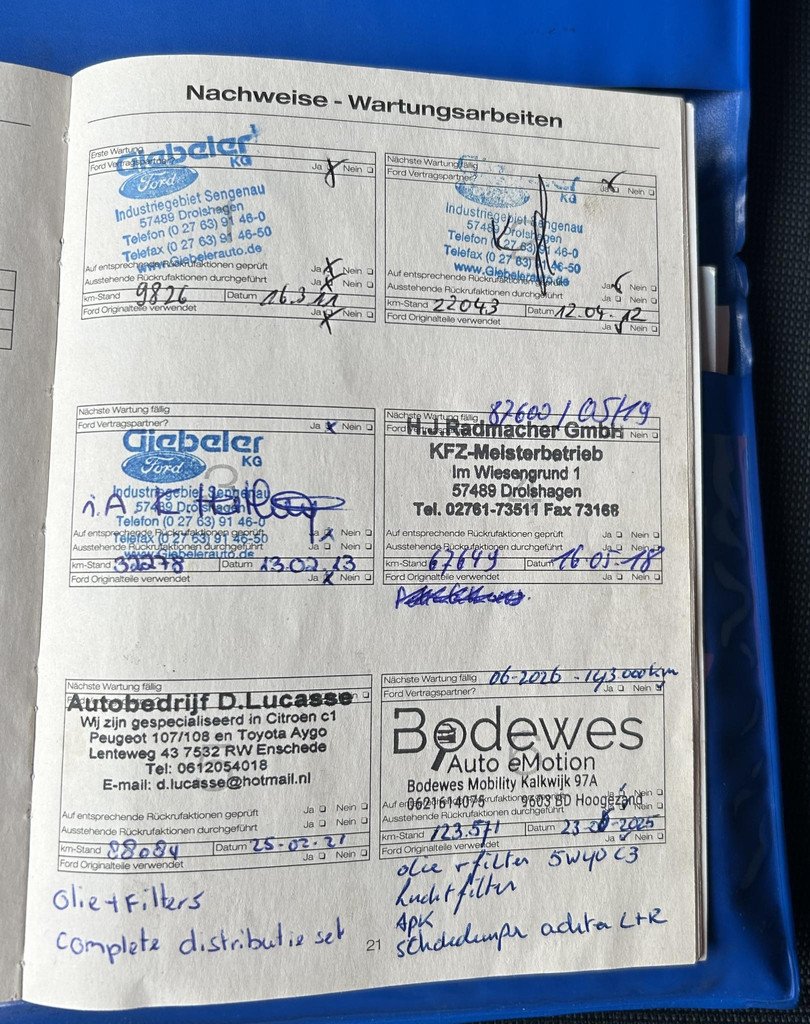 Nachweise - Wartungsarbeiten
Erste Wartung
Ford Vertragspartner? Ja Nein
Giebeler
KG
Ford
Industriegebiet Sengenau
57489 Drolshagen
Telefon (0 27 63) 91 46-0
Telefax (0 27 63) 91 46-50
www.Giebelerauto.de
Auf entsprechende Rückrufaktionen geprüft Ja Nein
Ausstehende Rückrufaktionen durchgeführt Ja Nein
km-Stand 9826 Datum 16.3.11
Ford Originalteile verwendet Ja Nein
Nächste Wartung fällig
Ford Vertragspartner Ja Nein
KG
Industriegebiet Sengenau
57489 Drolshagen
Telefon (0 27 63) 91 46-0
Telefax (0 27 63) 91 46-50
www.Giebelerauto.de
Auf entsprechende Rückrufaktionen geprüft Ja Nein
Ausstehende Rückrufaktionen durchgeführt Ja Nein
km-Stand 22043 Datum 12.04.12
Ford Originalteile verwendet Ja Nein
Nächste Wartung fällig
Ford Vertragspartner? Ja Nein
Giebeler
KG
Ford
3
Industriegebiet Sengenau
57489 Drolshagen
i.A
Telefon (0 27 63) 91 46-0
Telefax (0 27 63) 91 46-50
www.Giebelerauto.de
Auf entsprechende Rückrufaktionen geprüft Ja Nein
Ausstehende Rückrufaktionen durchgeführt Ja Nein
km-Stand 32278 Datum 13.02.13
Ford Originalteile verwendet Ja Nein
Nächste Wartung fällig 87600 / 05/19
Ford Nein
H.J.Radmacher GmbH
KFZ-Meisterbetrieb
Im Wiesengrund 1
57489 Drolshagen
Tel. 02761-73511 Fax 73168
Auf entsprechende Rückrufaktionen geprüft Ja Nein
Ausstehende Rückrufaktionen durchgeführt Ja Nein
km-Stand 67649 Datum 16-05-18
Ford Originalteile verwendet Ja Nein
Nächste Wartung fällig
Autobedrijf D.Lucasse
Wij zijn gespecialiseerd in Citroen c1
Peugeot 107/108 en Toyota Aygo
Lenteweg 43 7532 RW Enschede
Tel: 0612054018
E-mail: d.lucasse@hotmail.nl
Auf entsprechende Rückrufaktionen geprüft Ja Nein
Ausstehende Rückrufaktionen durchgeführt Ja Nein
km-Stand 88084 Datum 25-02-21
Ford Originalteile verwendet Ja Nein
Olie + Filters
Complete distributie set
Nächste Wartung fällig 06-2026 - 143000km
Ford Vertragspartner? Ja Nein
Bodewes
Auto eMotion
Bodewes Mobility Kalkwijk 97A
0621614075 9603 BD Hoogezand
Auf entsprechende Rückrufaktionen geprüft Ja Nein
Ausstehende Rückrufaktionen durchgeführt Ja Nein
km-Stand 123.571 Datum 23 2025
Ford Originalteile verwendet Ja Nein
olie + filter 5W40 C3
luchtfilter
APK
schokdemper achter L+R
21